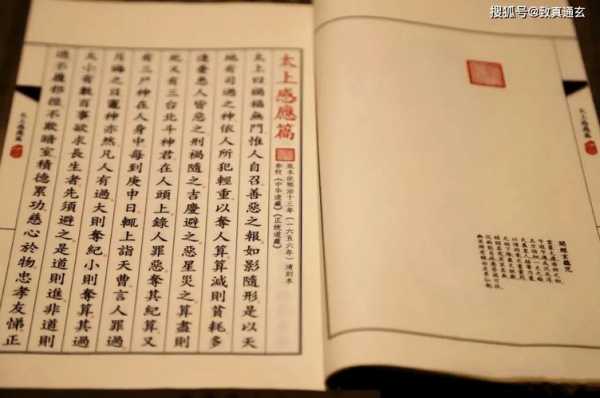 搜狐号@致真通玄
開經玄蘊咒
太上感應篇
底本依順治十三年（一六五六年）清刻本
參校《中华道藏》《正統道藏》
太上曰禍福無門惟人自召善惡之報如影隨形是以天
地有司過之神依人所犯輕重以奪人算算減則貧耗多
逢憂患人皆惡之刑禍隨之吉慶避之惡星災之算盡則
死又有三台北斗神君在人頭上錄人罪惡奪其紀算又
有三尸神在人身中每到庚申日輒上詣天曹言人罪過
月晦之日竈神亦然凡人有過大則奪紀小則奪算其過
大小有數百事欲求長生者先須避之是道則進非道則
退不履邪徑不欺暗室積德累功慈心於物忠孝友悌正
太上感應篇